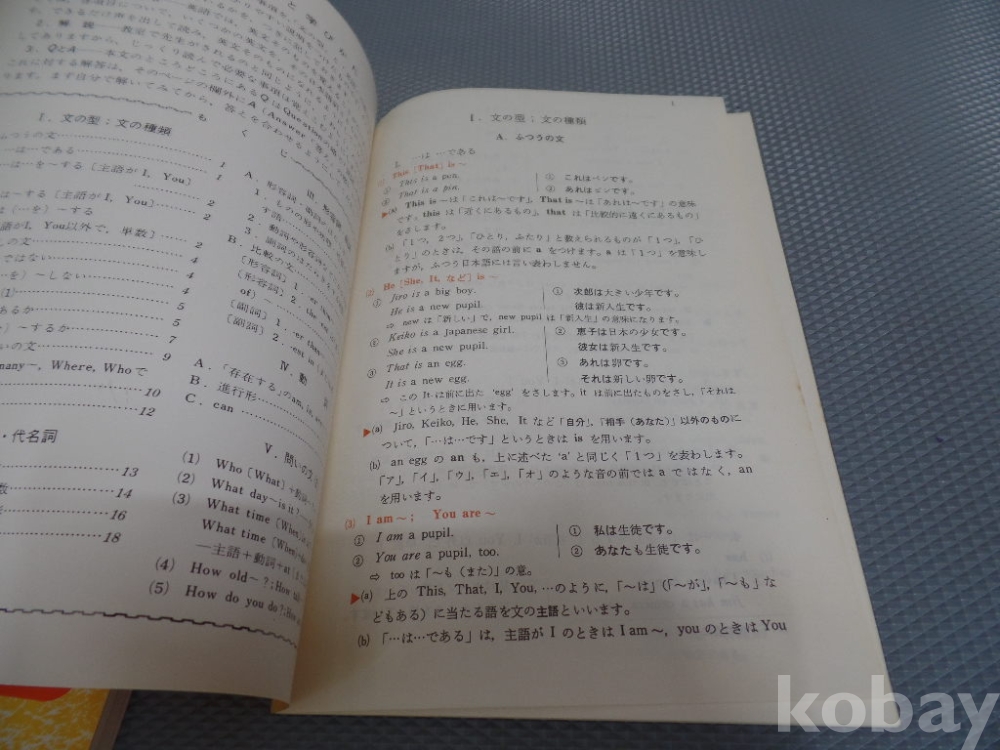 と 学 び
2. 解 説——教室で先生がされるのと同じように
3. QとA——本文のところどころにあるQはQuestion
これに対する解答は、そのページの欄外にA(Answer
ります。まず自分で解いてみてから、答えを合わせると
I. 文の型；文の種類
ふつうの文 1
…は…である 1
…は…を～する〔主語が I, You〕 2
は～する〔主語が I, You〕 2
は（…を）～する
語が I, You以外で，単数〕 2
この文 4
ではない 4
を）～しない 4
(1) 5
あるか 5
）～するか 7
いの文 9
many～, Where, Whoで
10
12
・代名詞
13
数 14
16
18
B. 比較の文
〔形容詞〕 1. -er
〔形容詞〕 2. the
of)～
〔副詞〕 1. -er
〔副詞〕 2. -est
Ⅳ. 動
A. 「存在する」の am, is,
B. 進行形
C. can
Ⅴ. 問いの文
(1) Who〔What〕＋動詞
(2) What day～is it?
(3) What time〔When〕
What time〔When〕
—主語＋動詞＋at
(4) How old～?; How
(5) How do you do?; How
1
I. 文の型；文の種類
A. ふつうの文
1. …は…である
(1) This〔That〕is～
① This is a pen. ① これはペンです。
② That is a pin. ② あれはピンです。
▶(a) This is～は「これは～です」，That is～は「あれは～です」の意味
です。this は「近くにあるもの」，that は「比較的に遠くにあるもの」
をさします。
(b) 「1つ，2つ」，「ひとり，ふたり」と数えられるものが「1つ」，「ひ
とり」のときは，その語の前に a をつけます。a は「1つ」を意味し
ますが，ふつう日本語には言い表わしません。
(2) He〔She, It, など〕is～
① Jiro is a big boy. ① 次郎は大きい少年です。
He is a new pupil. 彼は新入生です。
⇨ new は「新しい」で，new pupil は「新入生」の意味になります。
② Keiko is a Japanese girl. ② 恵子は日本の少女です。
She is a new pupil. 彼女は新入生です。
③ That is an egg. ③ あれは卵です。
It is a new egg. それは新しい卵です。
⇨ この It は前に出た 'egg' をさします。it は前に出たものをさし，「それは
～」というときに用います。
▶(a) Jiro, Keiko, He, She, It など「自分」，「相手（あなた）」以外のものに
ついて，「…は…です」というときは is を用います。
(b) an egg の an も，上に述べた 'a' と同じく「1つ」を表わします。
「ア」，「イ」，「ウ」，「エ」，「オ」のような音の前では a ではなく，an
を用います。
(3) I am～； You are～
① I am a pupil. ① 私は生徒です。
② You are a pupil, too. ② あなたも生徒です。
⇨ too は「～も（また）」の意。
▶(a) 上の This, That, I, You, …のように，「～は」（「～が」，「～も」な
どもある）に当たる語を文の主語といいます。
(b) 「…は…である」は，主語が I のときは I am～，you のときは You
kobay